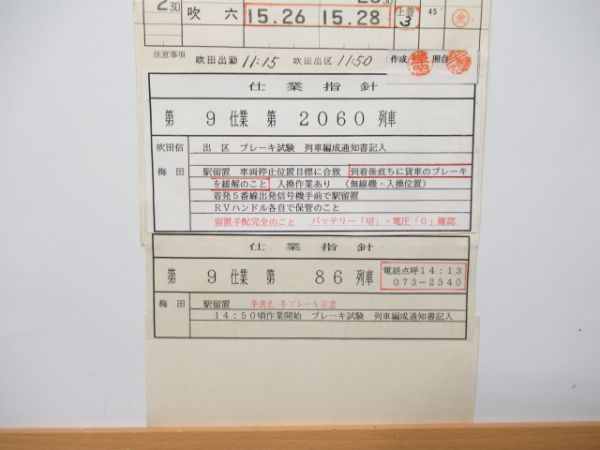 2 30
吹六 15.26 15.28 上最 3 45
注意事項 吹田出勤 11:15 吹田出区 11:50 作成 照合
仕業指針
第 9 仕業 第 2060 列車
吹田信 出区 ブレーキ試験 列車編成通知書記入
梅田 駅留置 車両停止位置目標に合致 到着後直ちに貨車のブレーキ
を緩解のこと 入換作業あり (無線機・入換位置)
着発5番線出発信号機手前で駅留置
RVハンドル各自で保管のこと
留置手配完全のこと バッテリー「切」・電圧「0」確認
仕業指針
第 9 仕業 第 86 列車 電話点呼14:13
073-2340
梅田 駅留置 手歯止・手ブレーキ注意
14:50頃作業開始 ブレーキ試験 列車編成通知書記入